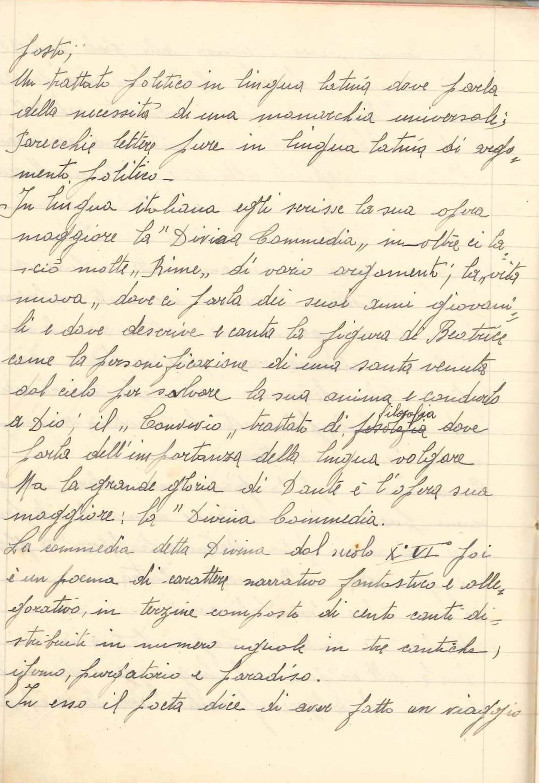 posto;
Un trattato politico in lingua latina dove parla
della necessità di una monarchia universale;
Parecchie lettere pure in lingua latina di argo-
mento politico -
In lingua italiana egli scrisse la sua opera
maggiore la "Divina Commedia„ in-oltre ci la-
sciò molte „Rime„ di vario argomenti; la „vita
nuova„ dove ci parla dei suoi anni giovani-
li e dove descrive e canta la figura di Beatrice
come la personificazione di una santa venuta
dal cielo per salvare la sua anima e condurlo
a Dio; il „Convivio„ trattato di filosofia dove
parla dell'importanza della lingua volgare
Ma la grande gloria di Dante è l'opera sua
maggiore: la "Divina Commedia.
La commedia detta Divina dal secolo X°VI° poi
è un poema di carattere narrativo fantastico e alle-
gorativo, in terzine composto di cento canti di-
stribuiti in numero uguale in tre cantiche;
iferno, purgatorio e paradiso.
In esso il poeta dice di aver fatto un viaggio